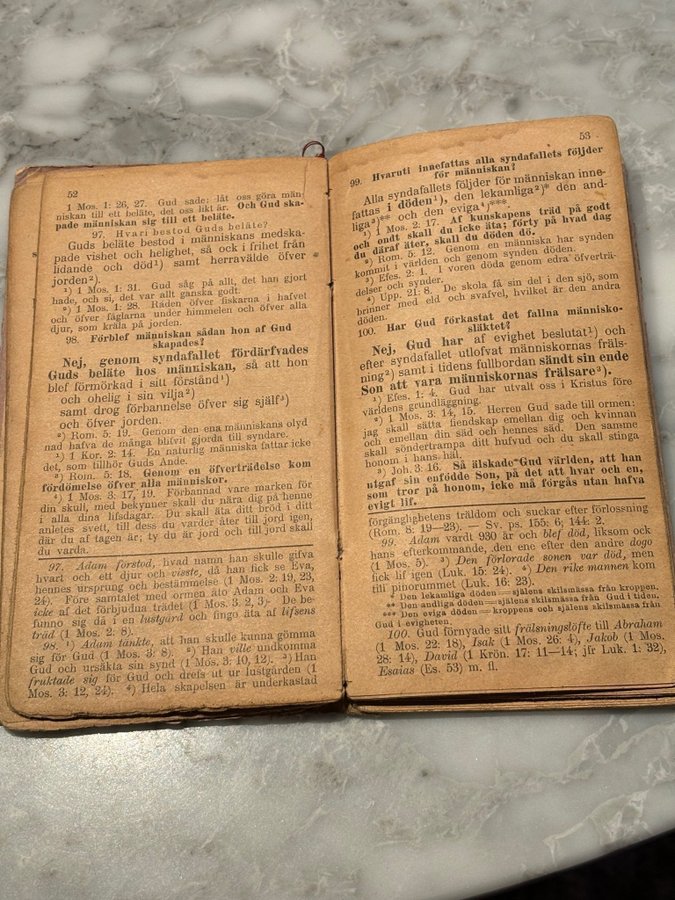 52
1 Mos. 1: 26, 27. Gud sade: låt oss göra män-
niskan till ett beläte, det oss likt är. Och Gud ska-
pade människan sig till ett beläte.
97. Hvari bestod Guds beläte?
Guds beläte bestod i människans medska-
pade vishet och helighet, så ock i frihet från
lidande och död¹) samt herravälde öfver
jorden²).
¹) 1 Mos. 1: 31. Gud såg på allt, det han gjort
hade, och si, det var allt ganska godt.
²) 1 Mos. 1: 28. Råden öfver fiskarna i hafvet
och öfver fåglarna under himmelen och öfver alla
djur, som kräla på jorden.
98. Förblef människan sådan hon af Gud
skapades?
Nej, genom syndafallet fördärfvades
Guds beläte hos människan, så att hon
blef förmörkad i sitt förstånd¹)
och ohelig i sin vilja²)
samt drog förbannelse öfver sig själf³)
och öfver jorden.
⁰) Rom. 5: 19. Genom den ena människans olyd
nad hafva de många blifvit gjorda till syndare.
¹) 1 Kor. 2: 14. En naturlig människa fattar icke
det, som tillhör Guds Ande.
³) Rom. 5: 18. Genom en öfverträdelse kom
fördömelse öfver alla människor.
⁴) 1 Mos. 3: 17, 19. Förbannad vare marken för
din skull, med bekymmer skall du nära dig på henne
i alla dina lifsdagar. Du skall äta ditt bröd i ditt
anletes svett, till dess du varder åter till jord igen,
där du af tagen är; ty du är jord och till jord skall
du varda.
97. Adam förstod, hvad namn han skulle gifva
hvart och ett djur och visste, då han fick se Eva,
hennes ursprung och bestämmelse (1 Mos. 2: 19, 23,
24). Före samtalet med ormen åto Adam och Eva
icke af det förbjudna trädet (1 Mos. 3: 2, 3). De be-
funno sig då i en lustgård och fingo äta af lifsens
träd (1 Mos. 2: 8).
98. ¹) Adam tänkte, att han skulle kunna gömma
sig för Gud (1 Mos. 3: 8). ²) Han ville undkomma
Gud och ursäkta sin synd (1 Mos. 3: 10, 12). ³) Han
fruktade sig för Gud och drefs ut ur lustgården (1
Mos. 3: 12, 24). ⁴) Hela skapelsen är underkastad
53
99. Hvaruti innefattas alla syndafallets följder
för människan?
Alla syndafallets följder för människan inne-
fattas i döden¹), den lekamliga²)* den and-
liga³)** och den eviga⁴)***
¹) 1 Mos. 2: 17. Af kunskapens träd på godt
och ondt skall du icke äta; förty på hvad dag
du däraf äter, skall du döden dö.
²) Rom. 5. 12. Genom en människa har synden
kommit i världen och genom synden döden.
³) Efes. 2: 1. I voren döda genom edra öfverträ-
delser och synder.
⁴) Upp. 21: 8. De skola få sin del i den sjö, som
brinner med eld och svafvel, hvilket är den andra
döden.
100. Har Gud förkastat det fallna människo-
släktet?
Nej, Gud har af evighet beslutat¹) och
efter syndafallet utlofvat människornas fräls-
ning²) samt i tidens fullbordan sändt sin ende
Son att vara människornas frälsare³).
¹) Efes. 1: 4. Gud har utvalt oss i Kristus före
världens grundläggning.
²) 1 Mos. 3: 14, 15. Herren Gud sade till ormen:
jag skall sätta fiendskap emellan dig och kvinnan
och emellan din säd och hennes säd. Den samme
skall söndertrampa ditt hufvud och du skall stinga
honom i hans häl.
³) Joh. 3: 16. Så älskade Gud världen, att han
utgaf sin enfödde Son, på det att hvar och en,
som tror på honom, icke må förgås utan hafva
evigt lif.
förgänglighetens träldom och suckar efter förlossning
(Rom. 8: 19—23). — Sv. ps. 155: 6; 144: 2.
99. Adam vardt 930 år och blef död, liksom ock
hans efterkommande, den ene efter den andre dogo
(1 Mos. 5). ³) Den förlorade sonen var död, men
fick lif igen (Luk. 15: 24). ⁴) Den rike mannen kom
till pinorummet (Luk. 16: 23).
* Den lekamliga döden = själens skilsmässa från kroppen.
** Den andliga döden = själens skilsmässa från Gud i tiden.
*** Den eviga döden = kroppens och själens skilsmässa från
Gud i evigheten.
100. Gud förnyade sitt frälsningslöfte till Abraham
(1 Mos. 22: 18), Isak (1 Mos. 26: 4), Jakob (1 Mos.
28: 14), David (1 Krön. 17: 11—14; jfr Luk. 1: 32),
Esaias (Es. 53) m. fl.